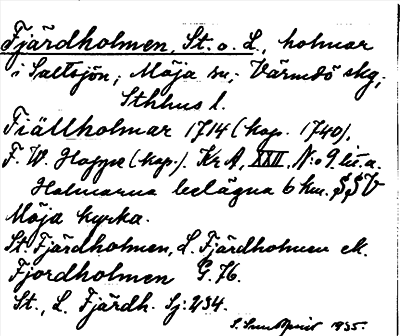 Fjärdholmen, St. o. L., holmar
i Saltsjön, Möja sn, Värmdö skg,
Sthlms l.
Fiällholmar 1714 (kop. 1740),
F. W. Hoppe (kop.). Kr A, XXII, N:o 9 lit. a.
Holmarna belägna 6 km. SSV
Möja kyrka.
St Fjärdholmen, L. Fjärdholmen ek.
Fjordholmen G. 76.
St., L. Fjärdh. Sj: 234.
S. Sundqvist 1935.